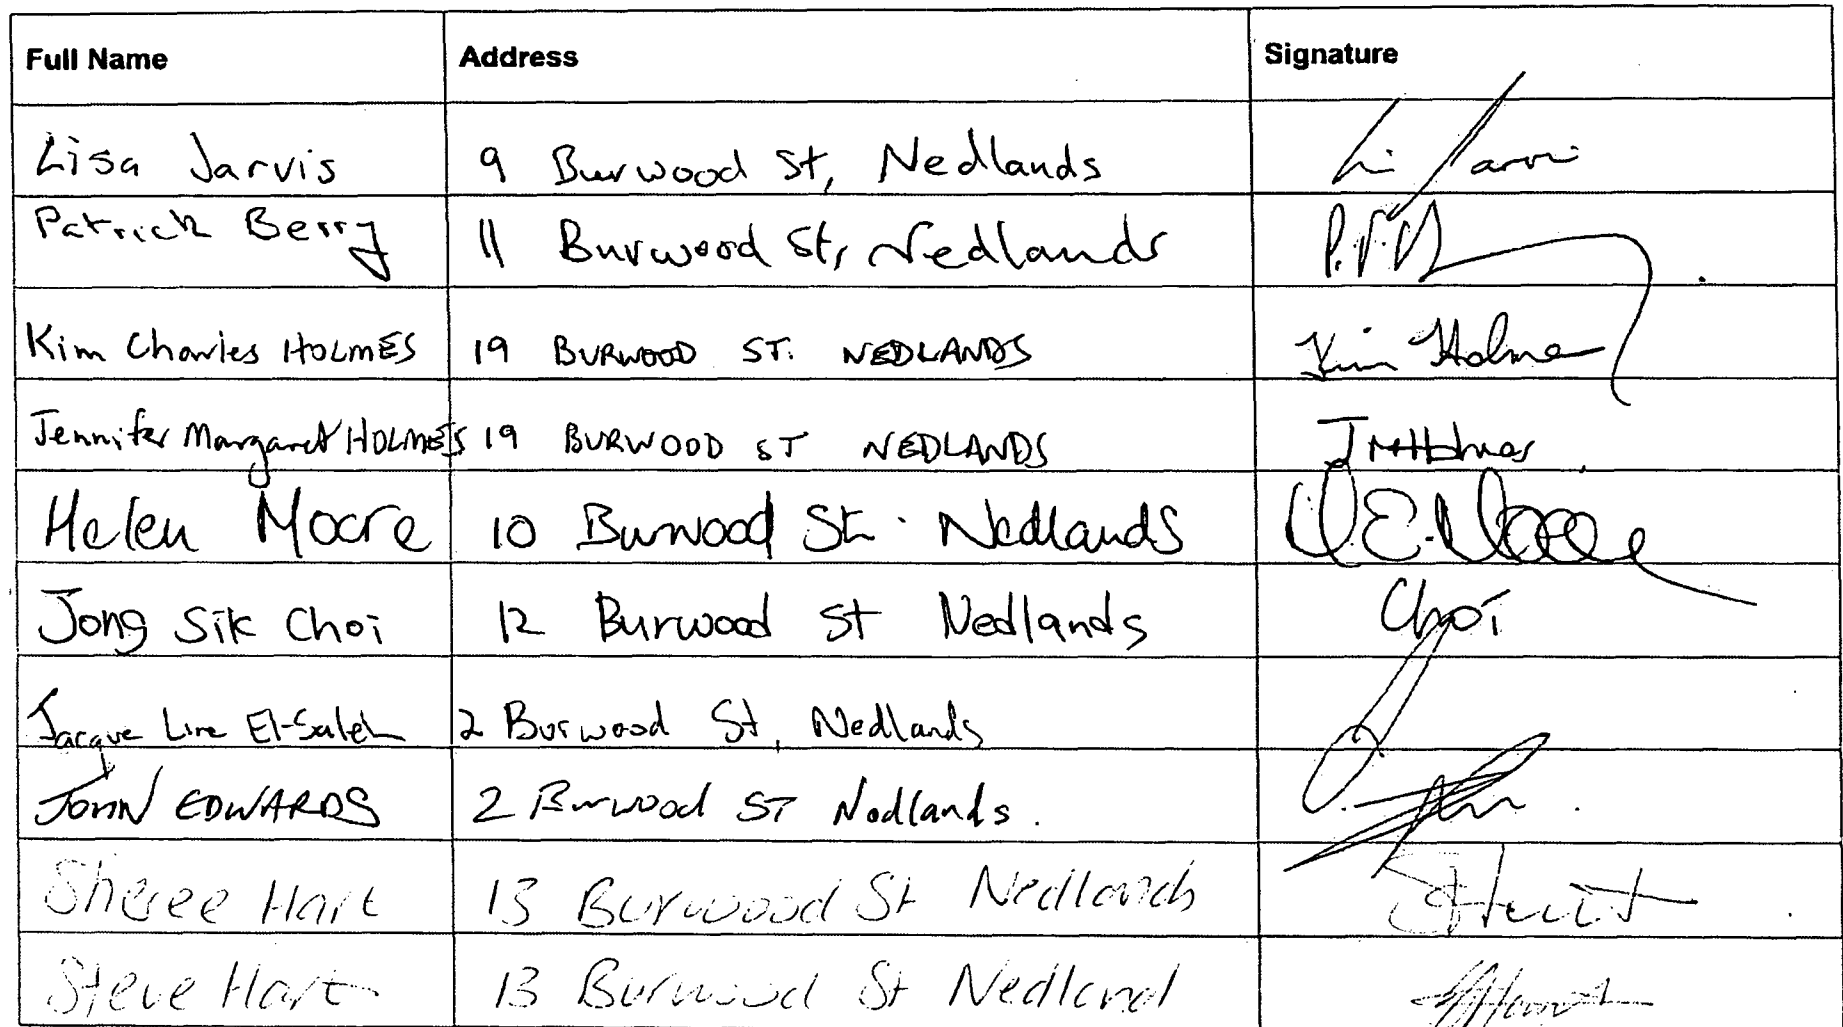 Full Name Address Signature
Lisa Jarvis 9 Burwood St, Nedlands
Patrick Berry 11 Burwood St, Nedlands
Kim Charles HOLMES 19 BURWOOD ST. NEDLANDS Kim Holmes
Jennifer Margaret HOLMES 19 BURWOOD ST NEDLANDS JMHolmes
Helen Moore 10 Burwood St. Nedlands H.E. Moore
Jong Sik Choi 12 Burwood St Nedlands Choi
Jacque Line El-Saleh 2 Burwood St, Nedlands
JOHN EDWARDS 2 Burwood ST Nedlands.
Sheree Hart 13 Burwood St Nedlands SHart
Steve Hart 13 Burwood St Nedland